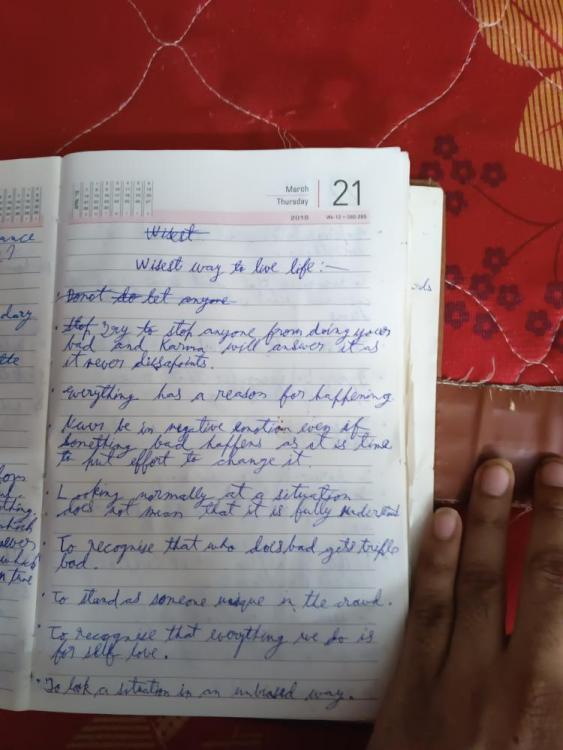 March
Thursday
21
2018 Wk-12 • 080-285
Wisest
Wisest way to live life:-
Donot do let anyone
Stop Try to stop anyone from doing your
bad and Karma will answer it as
it never dissapoints.
Everything has a reason for happening
Never be in negative emotion even if
something bad happens as it is time
to put effort to change it.
Looking normally at a situation
does not mean that it is fully
To recognise that who does bad gets triple
bad.
To stand as someone unique in the crowd.
To recognise that everything we do is
for self love.
To look a situation in an unbiased way.